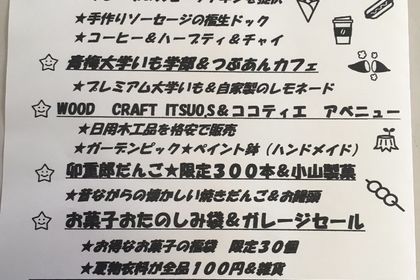 ★手作りソーセージの福生ドック
★コーヒー&ハーブティ&チャイ
青梅大学いも学部&つぶあんカフェ
★プレミアム大学いも&自家製のレモネード
WOOD CRAFT ITSUO,S&ココティエ アベニュー
★日用木工品を格安で販売
★ガーデンピック★ペイント鉢(ハンドメイド)
卯重郎だんご★限定300本&小山製菓
★昔ながらの懐かしい焼きだんご&お饅頭
お菓子おたのしみ袋&ガレージセール
★お得なお菓子の福袋 限定30個
★夏物衣料が全品100円&雑貨